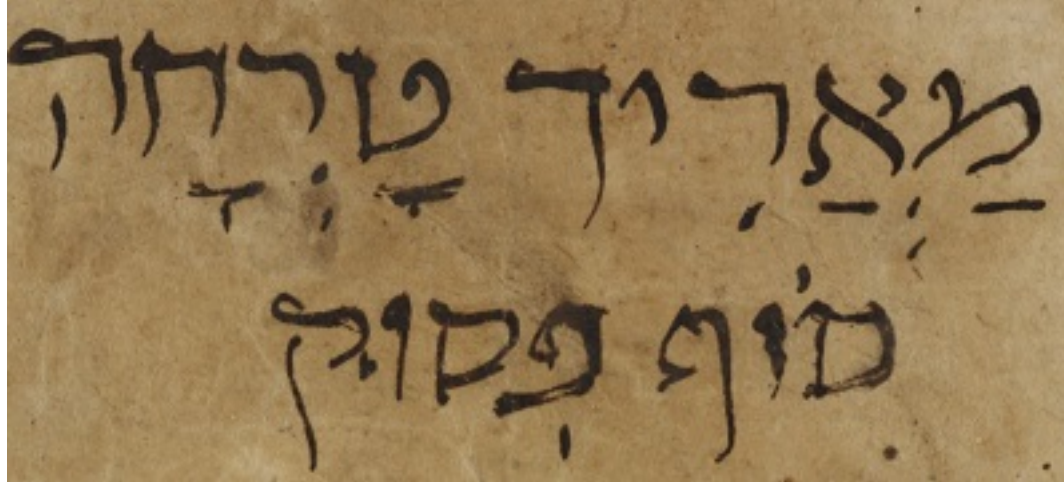 מַאֲרִיך טָרְחָה
סוֹף פְסוּק